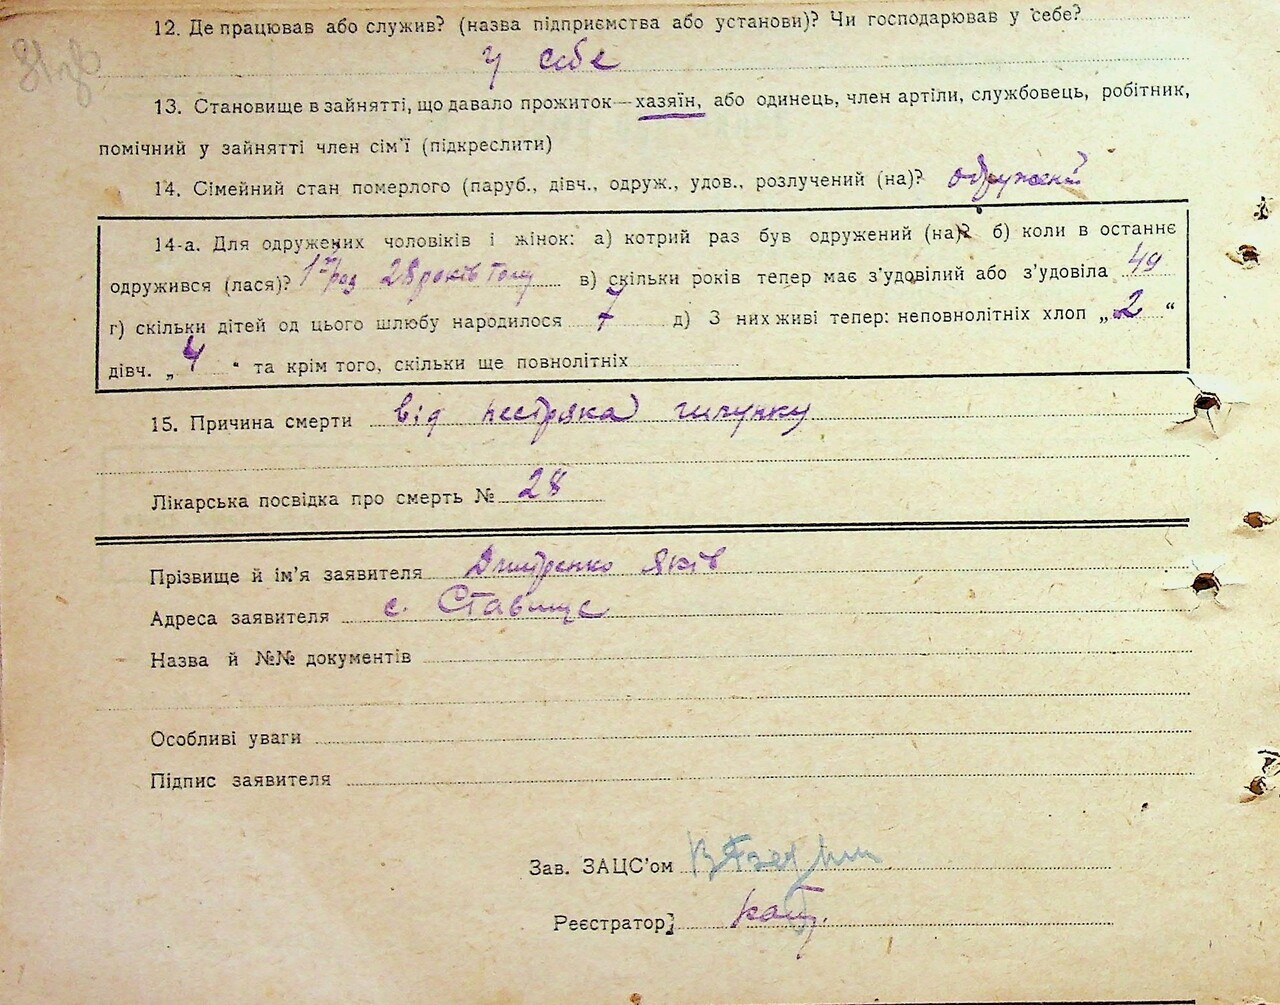 12. Де працював або служив? (назва підприємства або установи)? Чи господарював у себе?
у себе
13. Становище в зайнятті, що давало прожиток—хазяїн, або одинець, член артіли, службовець, робітник,
помічний у зайнятті член сім'ї (підкреслити)
14. Сімейний стан померлого (паруб., дівч., одруж., удов., розлучений (на)? одружений
14-а. Для одружених чоловіків і жінок: а) котрий раз був одружений (на)? б) коли в останнє
одружився (лася)? 1й раз 28 років тому в) скільки років тепер має з'удовілий або з'удовіла 49
г) скільки дітей од цього шлюбу народилося 7 д) З них живі тепер: неповнолітніх хлоп „2“
дівч. „4“ та крім того, скільки ще повнолітніх
15. Причина смерти від пістряка шлунку
Лікарська посвідка про смерть № 28
Прізвище й ім'я заявителя Дмитренко Яків
Адреса заявителя с. Ставище
Назва й №№ документів
Особливі уваги
Підпис заявителя
Зав. ЗАЦС'ом
Реєстратор